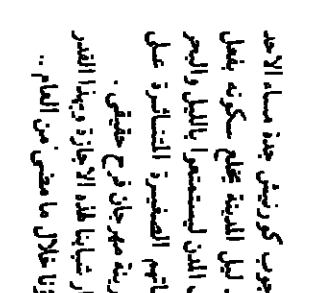 جوب كورنيش جدة مساء الاحد
ليل المدينة يخلع سكونه بفعل
المدن ليستمتعوا بالليل والبحر
الصغيرة المتناثرة على
مهرجان فرح حقيقي .
شبابنا لهذه الاجازة وبهذا القدر
خلال ما مضى من العام ..